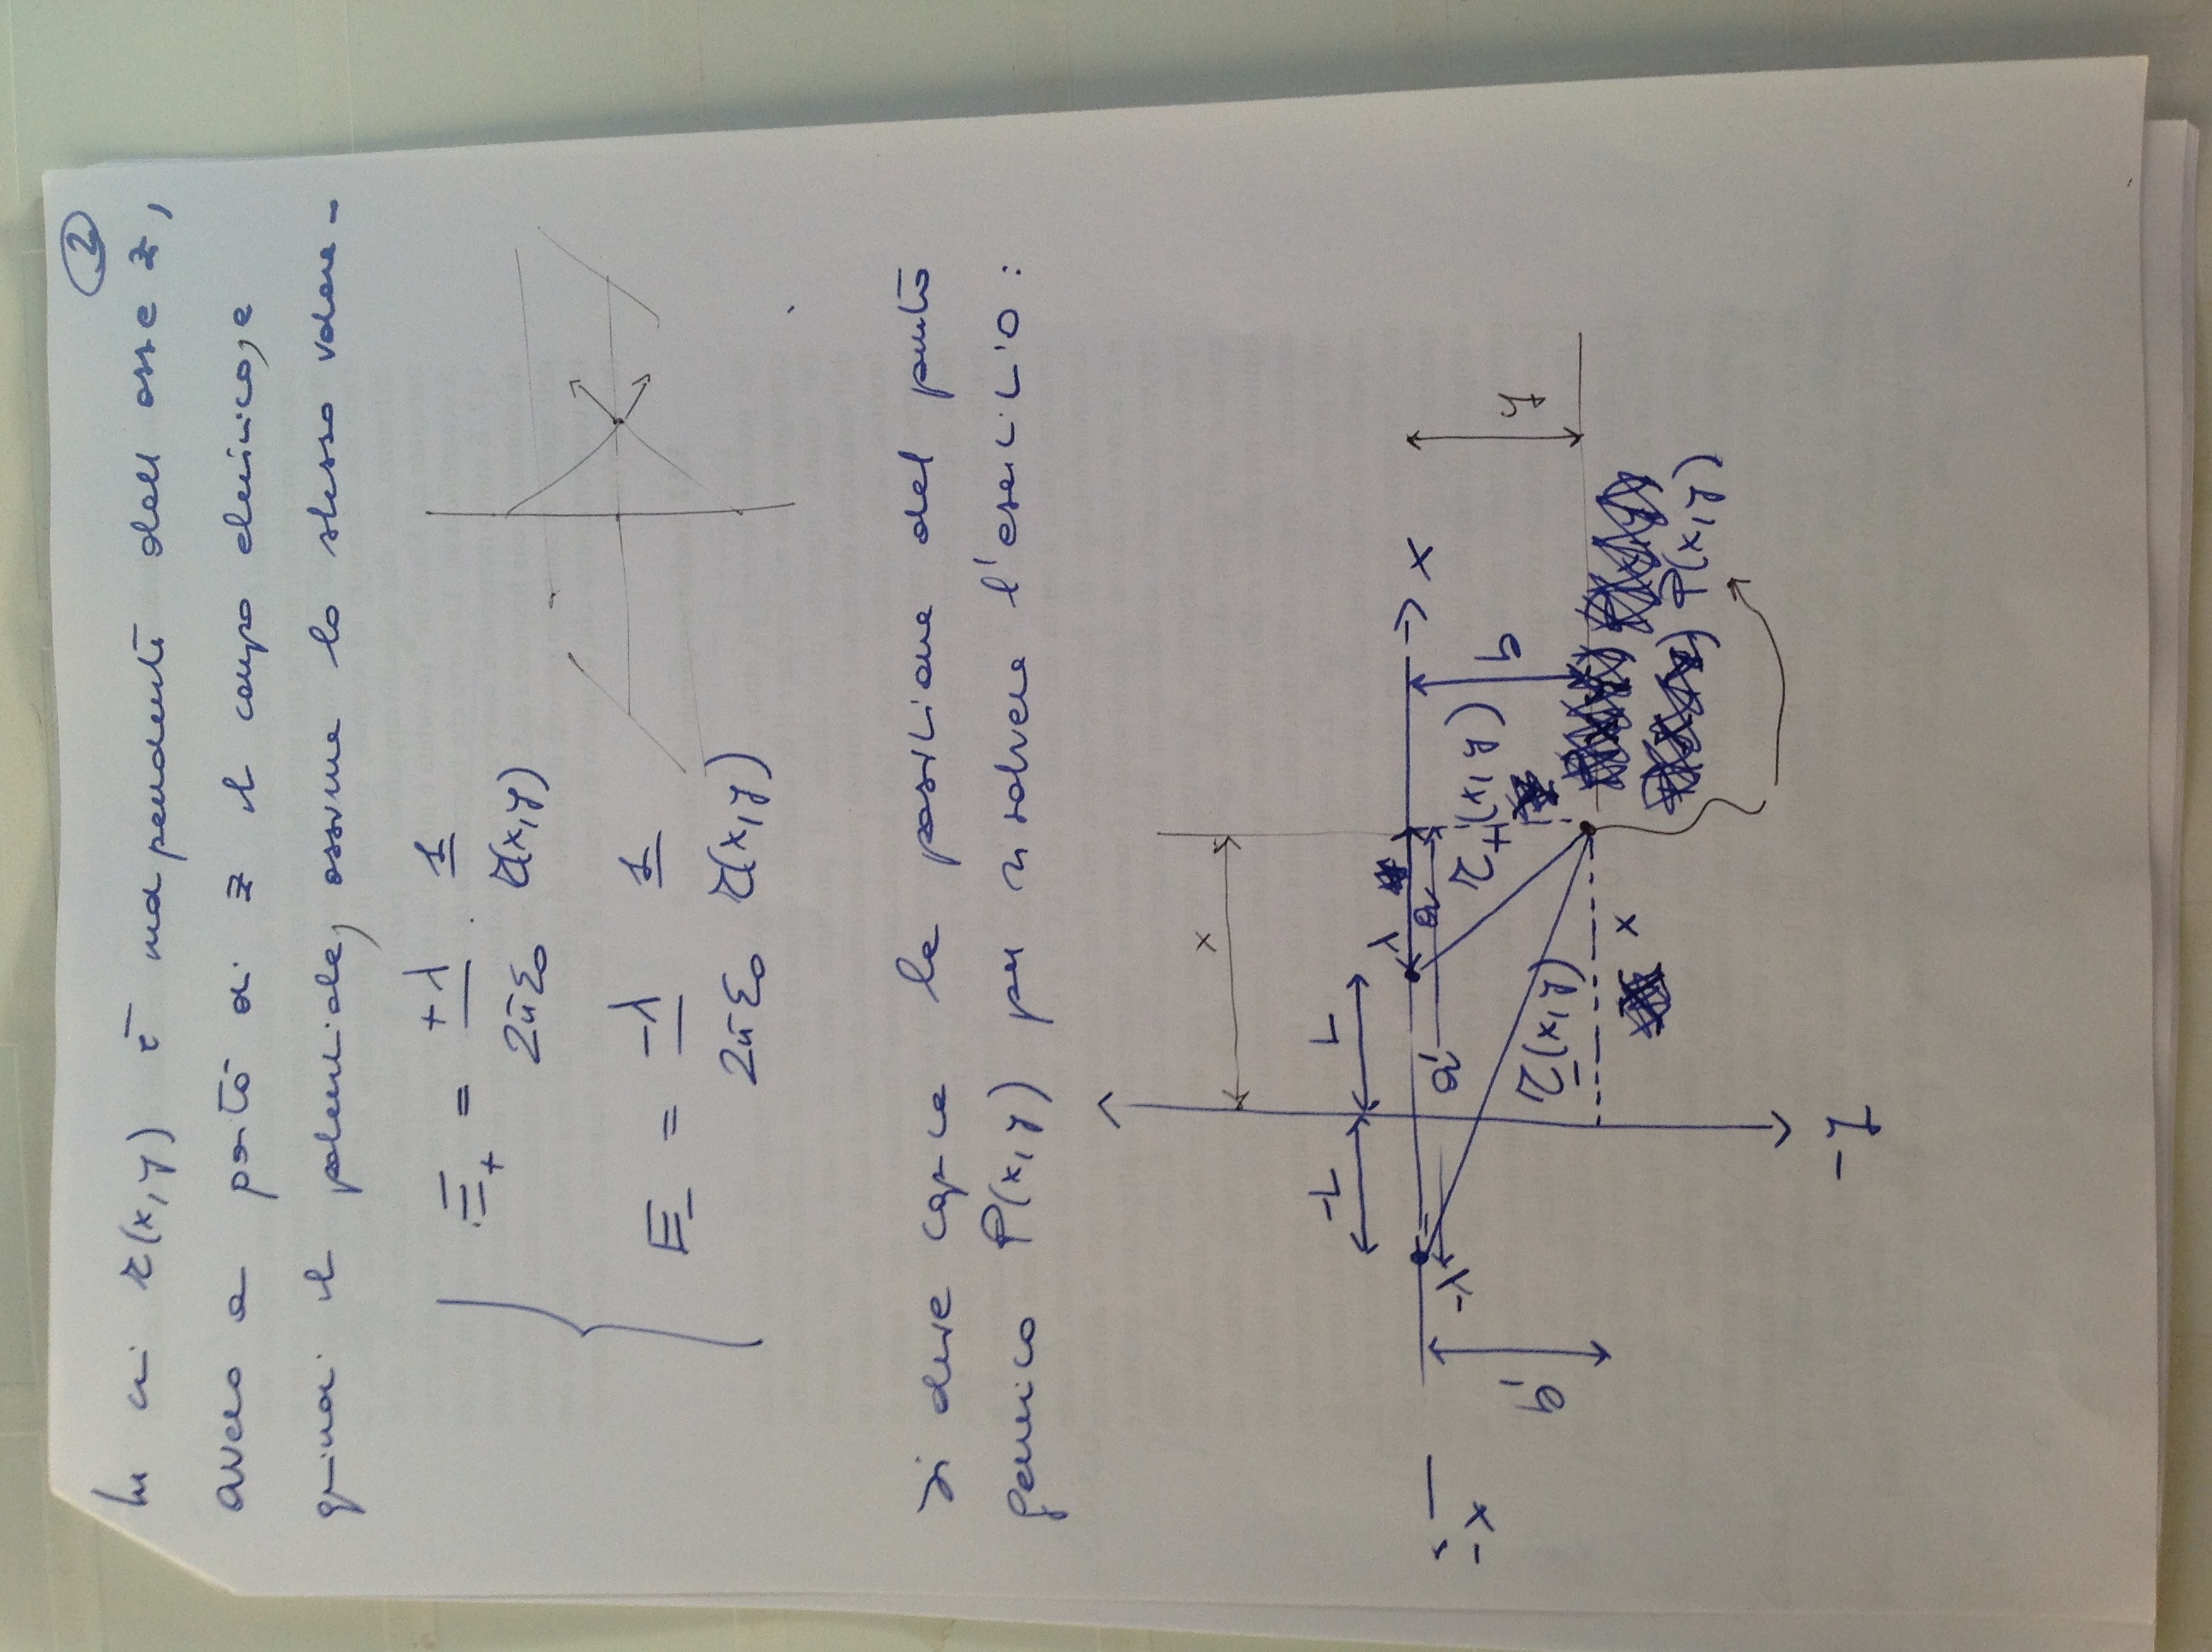 2
In cui r(x,y) è indipendente dall asse z,
ovvero a parità di z il campo elettrico, e
quindi il potenziale, assume lo stesso valore.
E₊ = +λ/2πε₀ · 1/r(x,y)
E₋ = -λ/2πε₀ 1/r(x,y)
Si deve capire la posizione del punto
generico P(x,y) per risolvere l'esercizio:
x
-L L
λ
-λ a' a x
-x
r₊(x,y)
b' b y
r₋(x,y)
x
P(x,y)
-y